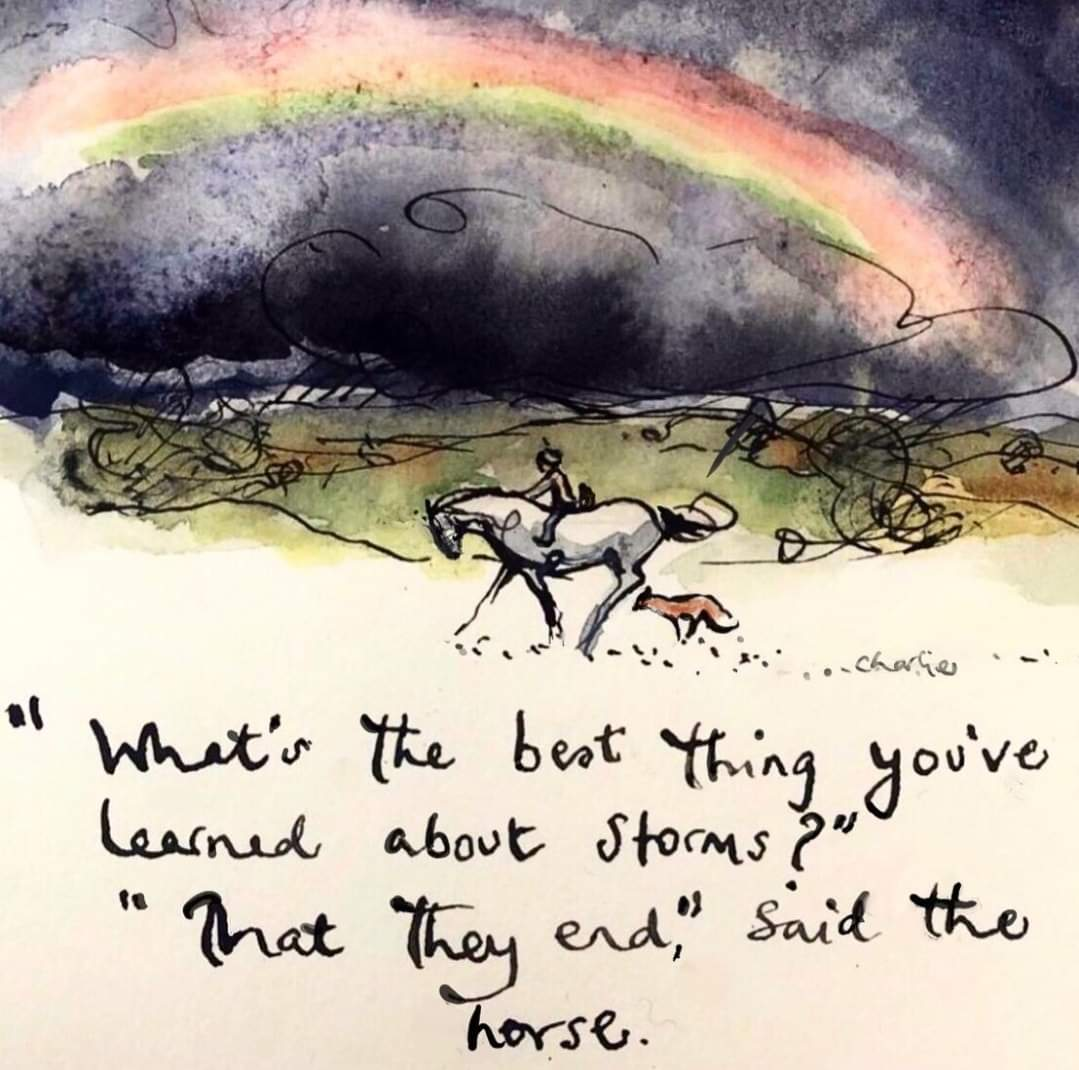 charlie
"What's the best thing you've
learned about storms?"
"That they end," said the
horse.